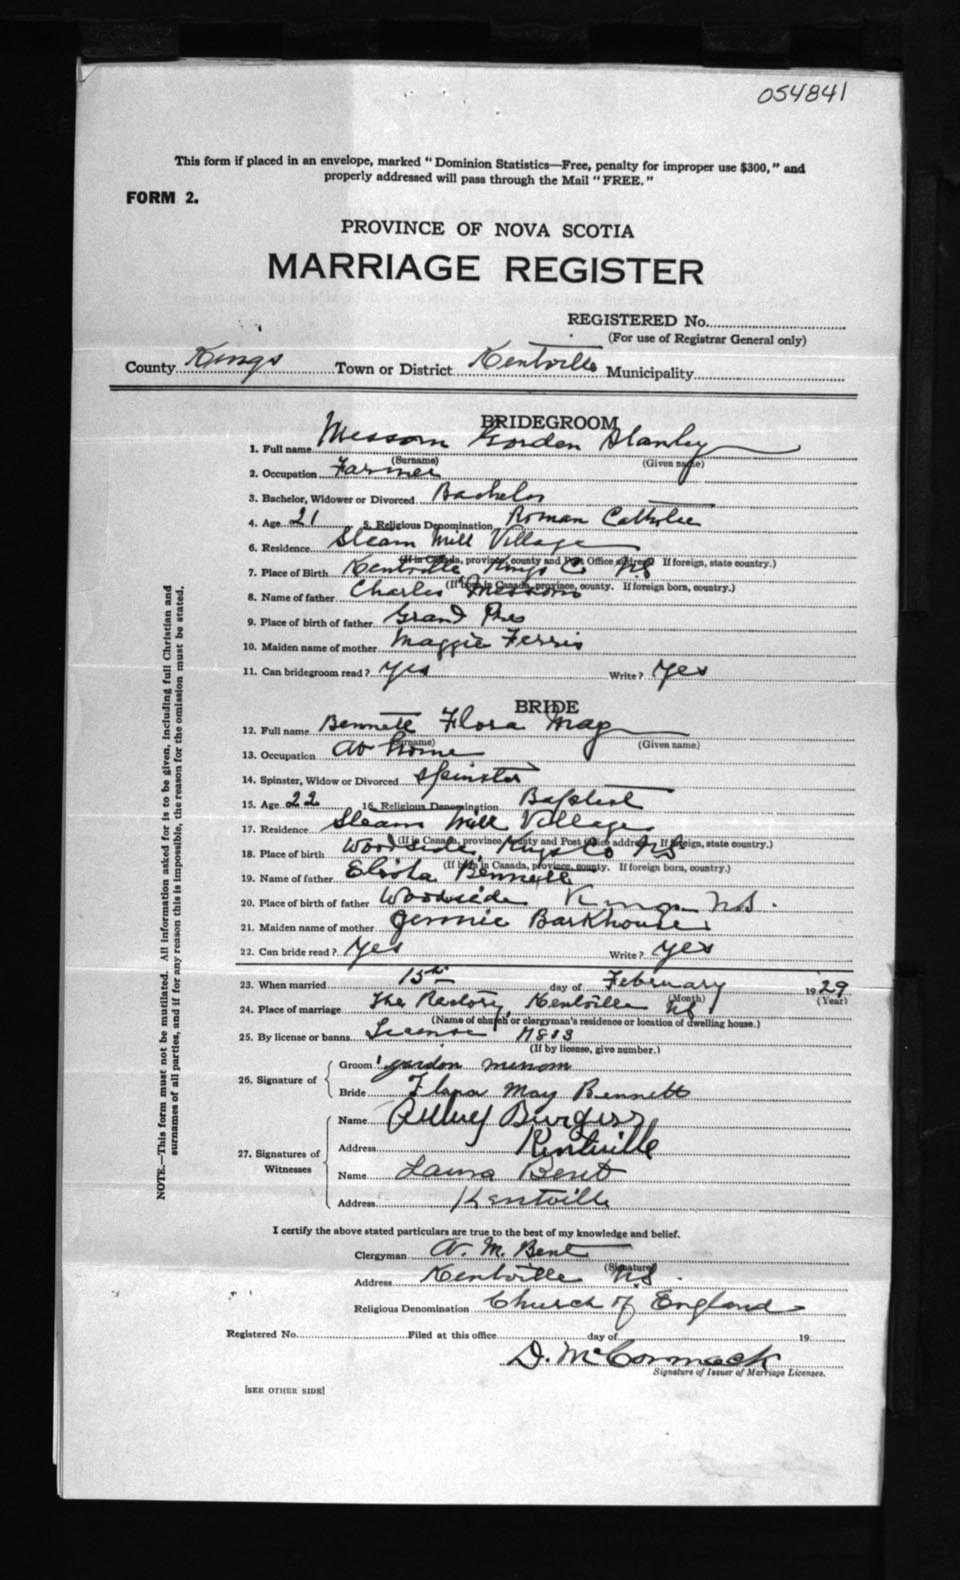 054841
This form if placed in an envelope, marked "Dominion Statistics—Free, penalty for improper use $300," and
properly addressed will pass through the Mail "FREE."
FORM 2.
PROVINCE OF NOVA SCOTIA
MARRIAGE REGISTER
REGISTERED No.
(For use of Registrar General only)
County Kings Town or District Kentville Municipality
BRIDEGROOM
1. Full name Messom Gordon Stanley
(Surname) (Given name)
2. Occupation Farmer
3. Bachelor, Widower or Divorced Bachelor
4. Age 21 5. Religious Denomination Roman Catholic
6. Residence Steam Mill Village
(If in Canada, province, county and Post Office address. If foreign, state country.)
7. Place of Birth Kentville Kings Co NS
(If born in Canada, province, county. If foreign born, country.)
8. Name of father Charles Messom
9. Place of birth of father Grand Pre
10. Maiden name of mother Maggie Ferris
11. Can bridegroom read? yes Write? yes
BRIDE
12. Full name Bennett Flora May
(Surname) (Given name)
13. Occupation at home
14. Spinster, Widow or Divorced Spinster
15. Age 22 16. Religious Denomination Baptist
17. Residence Steam Mill Village
(If in Canada, province, county and Post Office address. If foreign, state country.)
18. Place of birth Woodside Kings Co NS
(If born in Canada, province, county. If foreign born, country.)
19. Name of father Bennett
20. Place of birth of father Woodside Kings N.S.
21. Maiden name of mother Jennie Barkhouse
22. Can bride read? yes Write? yes
23. When married 15th day of February 1929
(Month) (Year)
24. Place of marriage The Rectory, Kentville NS
(Name of church or clergyman's residence or location of dwelling house.)
25. By license or banns License 7813
(If by license, give number.)
26. Signature of
Groom gordon messom
Bride Flora May Bennett
27. Signatures of
Witnesses
Name Burgess
Address Kentville
Name Laura Bent
Address Kentville
I certify the above stated particulars are true to the best of my knowledge and belief.
Clergyman A. M. Bent
(Signature)
Address Kentville N.S.
Religious Denomination Church of England
Registered No. Filed at this office day of 19
D. McCormack
Signature of Issuer of Marriage Licenses.
[SEE OTHER SIDE]
NOTE.—This form must not be mutilated. All information asked for is to be given, including full Christian and
surnames of all parties, and if for any reason this is impossible, the reason for the omission must be stated.